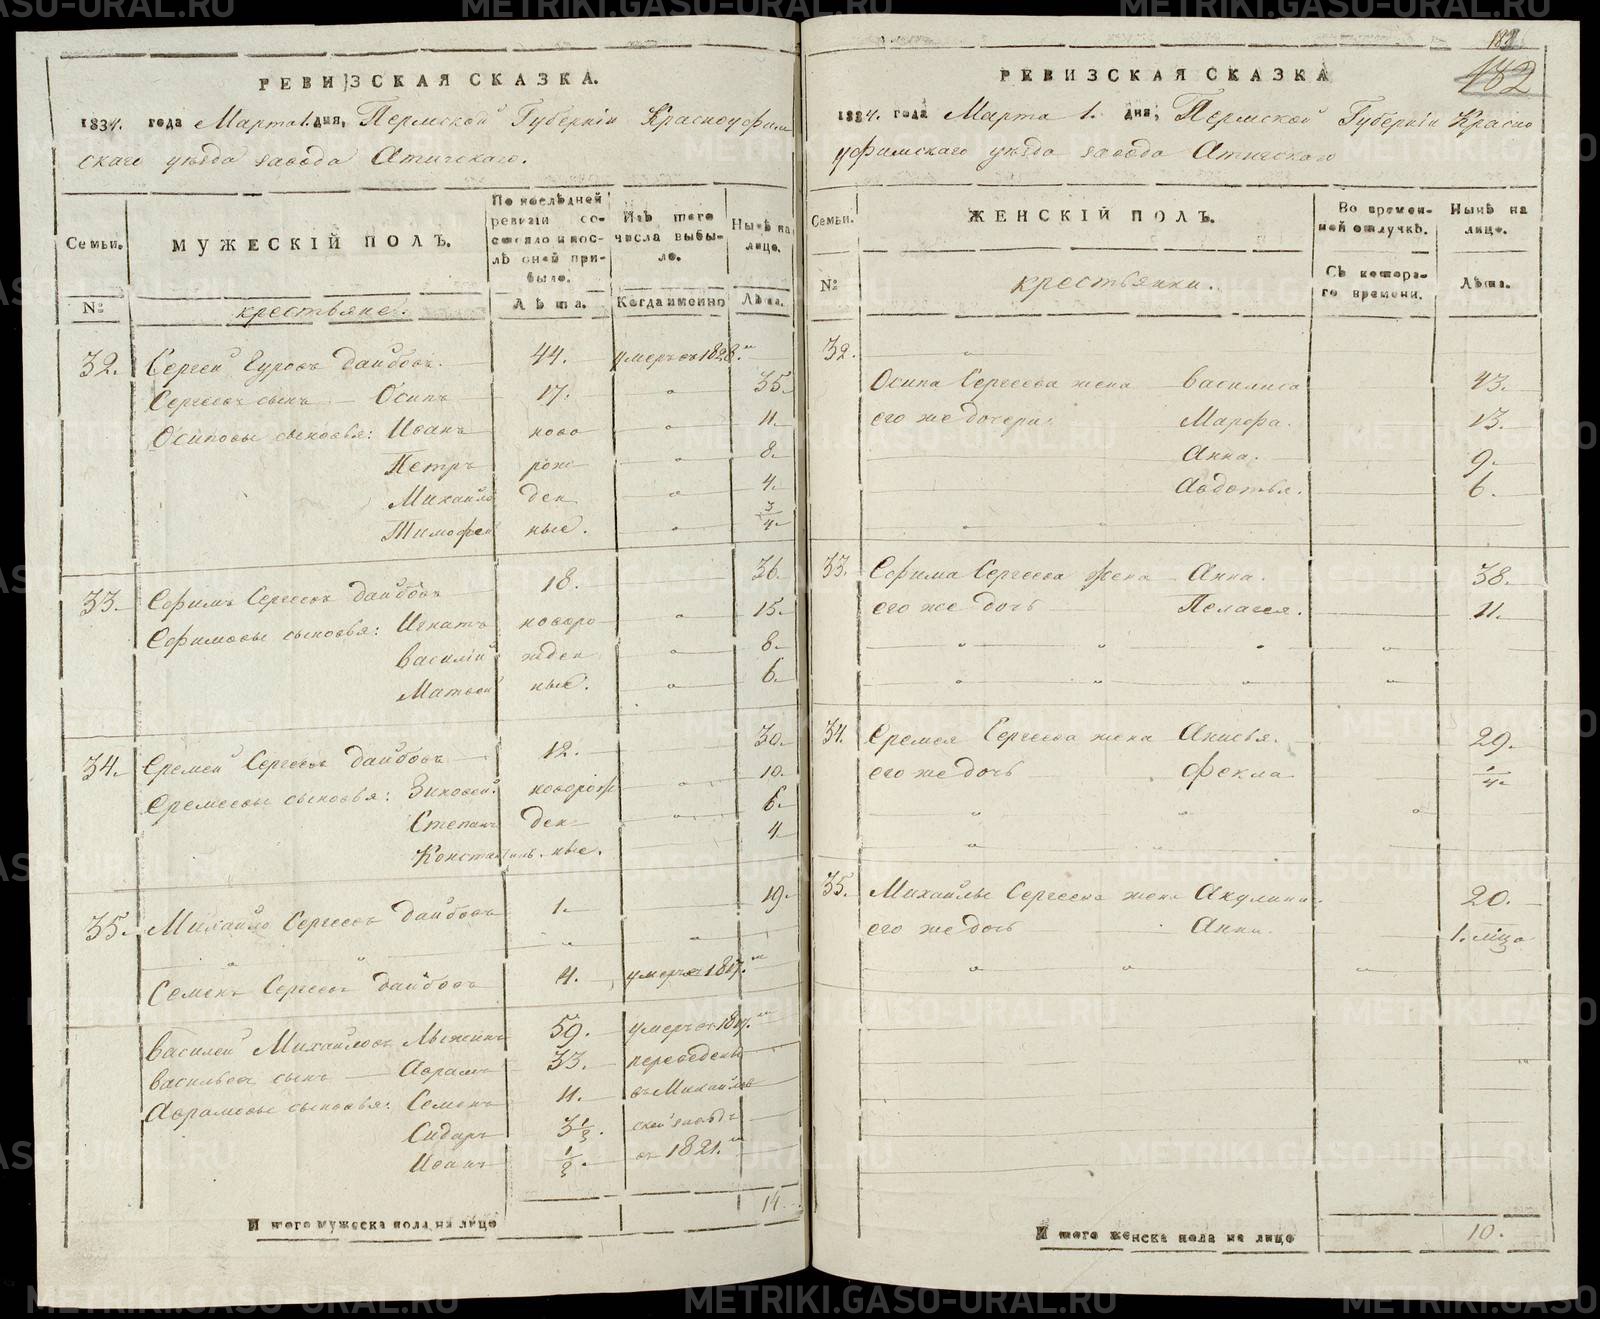 РЕВИЗСКАЯ СКАЗКА.
1834. года Марта 1. дня, Пермской Губерніи Красноуфим
скаго уѣзда завода Атигскаго.
Семьи. МУЖЕСКІЙ ПОЛЪ. По послѣдней ревизіи состояло и послѣ оной прибыло. Изъ того числа выбыло. Нынѣ на лице.
№ крестьяне. Лѣта. Когда именно Лѣта.
32. Сергей Гуровъ Дайбовъ. 44. умеръ въ 1828.
Сергеевъ сынъ Осипъ 17. 35.
Осиповы сыновья: Иванъ ново 11.
Петръ рож 8.
Михайло ден 4.
Тимофей ные. 3/4
33. Ефимъ Сергеевъ Дайбовъ 18. 36.
Ефимовы сыновья: Игнатъ новоро 15.
Василій жден 8.
Матвей ные. 6.
34. Еремей Сергеевъ Дайбовъ 12. 30.
Еремеевы сыновья: Зиновей новорож 10.
Степанъ ден 6.
Константинъ. ные. 4
35. Михайло Сергеевъ Дайбовъ 1. 19.
Семенъ Сергеевъ Дайбовъ 4. умеръ 1817.
Василей Михайловъ 59. умеръ въ 1817.
Васильевъ сынъ Аврамъ 33. переведены
Аврамовы сыновья: Семенъ 11. въ Михайлов
Сидоръ 3 1/2. ской заводъ
Иванъ 1/2. въ 1821.
Итого мужеска пола на лицо 14.
182
РЕВИЗСКАЯ СКАЗКА
1834. года Марта 1. дня, Пермской Губерніи Красно
уфимскаго уѣзда завода Атигскаго
Семьи. ЖЕНСКІЙ ПОЛЪ. Во временной отлучкѣ. Нынѣ на лице.
№ крестьянки. Съ котораго времени. Лѣта.
32.
Осипа Сергеева жена Василиса 43.
его же дочери: Марфа. 13.
Анна. 9.
Авдотья. 6.
33. Ефима Сергеева жена Анна. 38.
его же дочь Пелагея. 11.
34. Еремея Сергеева жена Анисья. 29.
его же дочь Фекла 1/4
35. Михайлы Сергеева жена Акулина. 20.
его же дочь Анна. 1.
Итого женска пола на лице 10.
METRIKI.GASO-URAL.RU